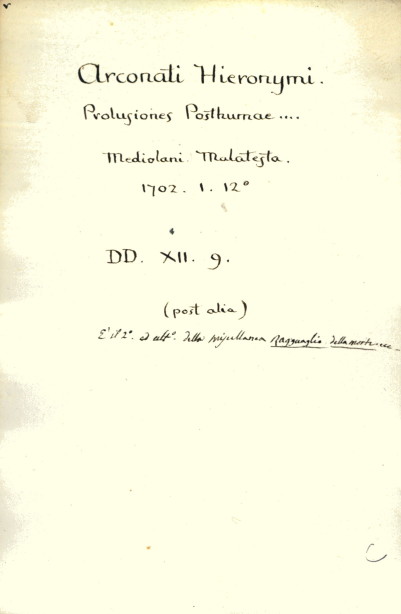 Arconati Hieronymi.
Prolusiones Posthumae ....
Mediolani Malatesta.
1702. 1. 12°
DD. XII. 9.
(post alia)
E' il 2°. ed ult°. della miscellanea Ragguaglio della morte ecc.
C